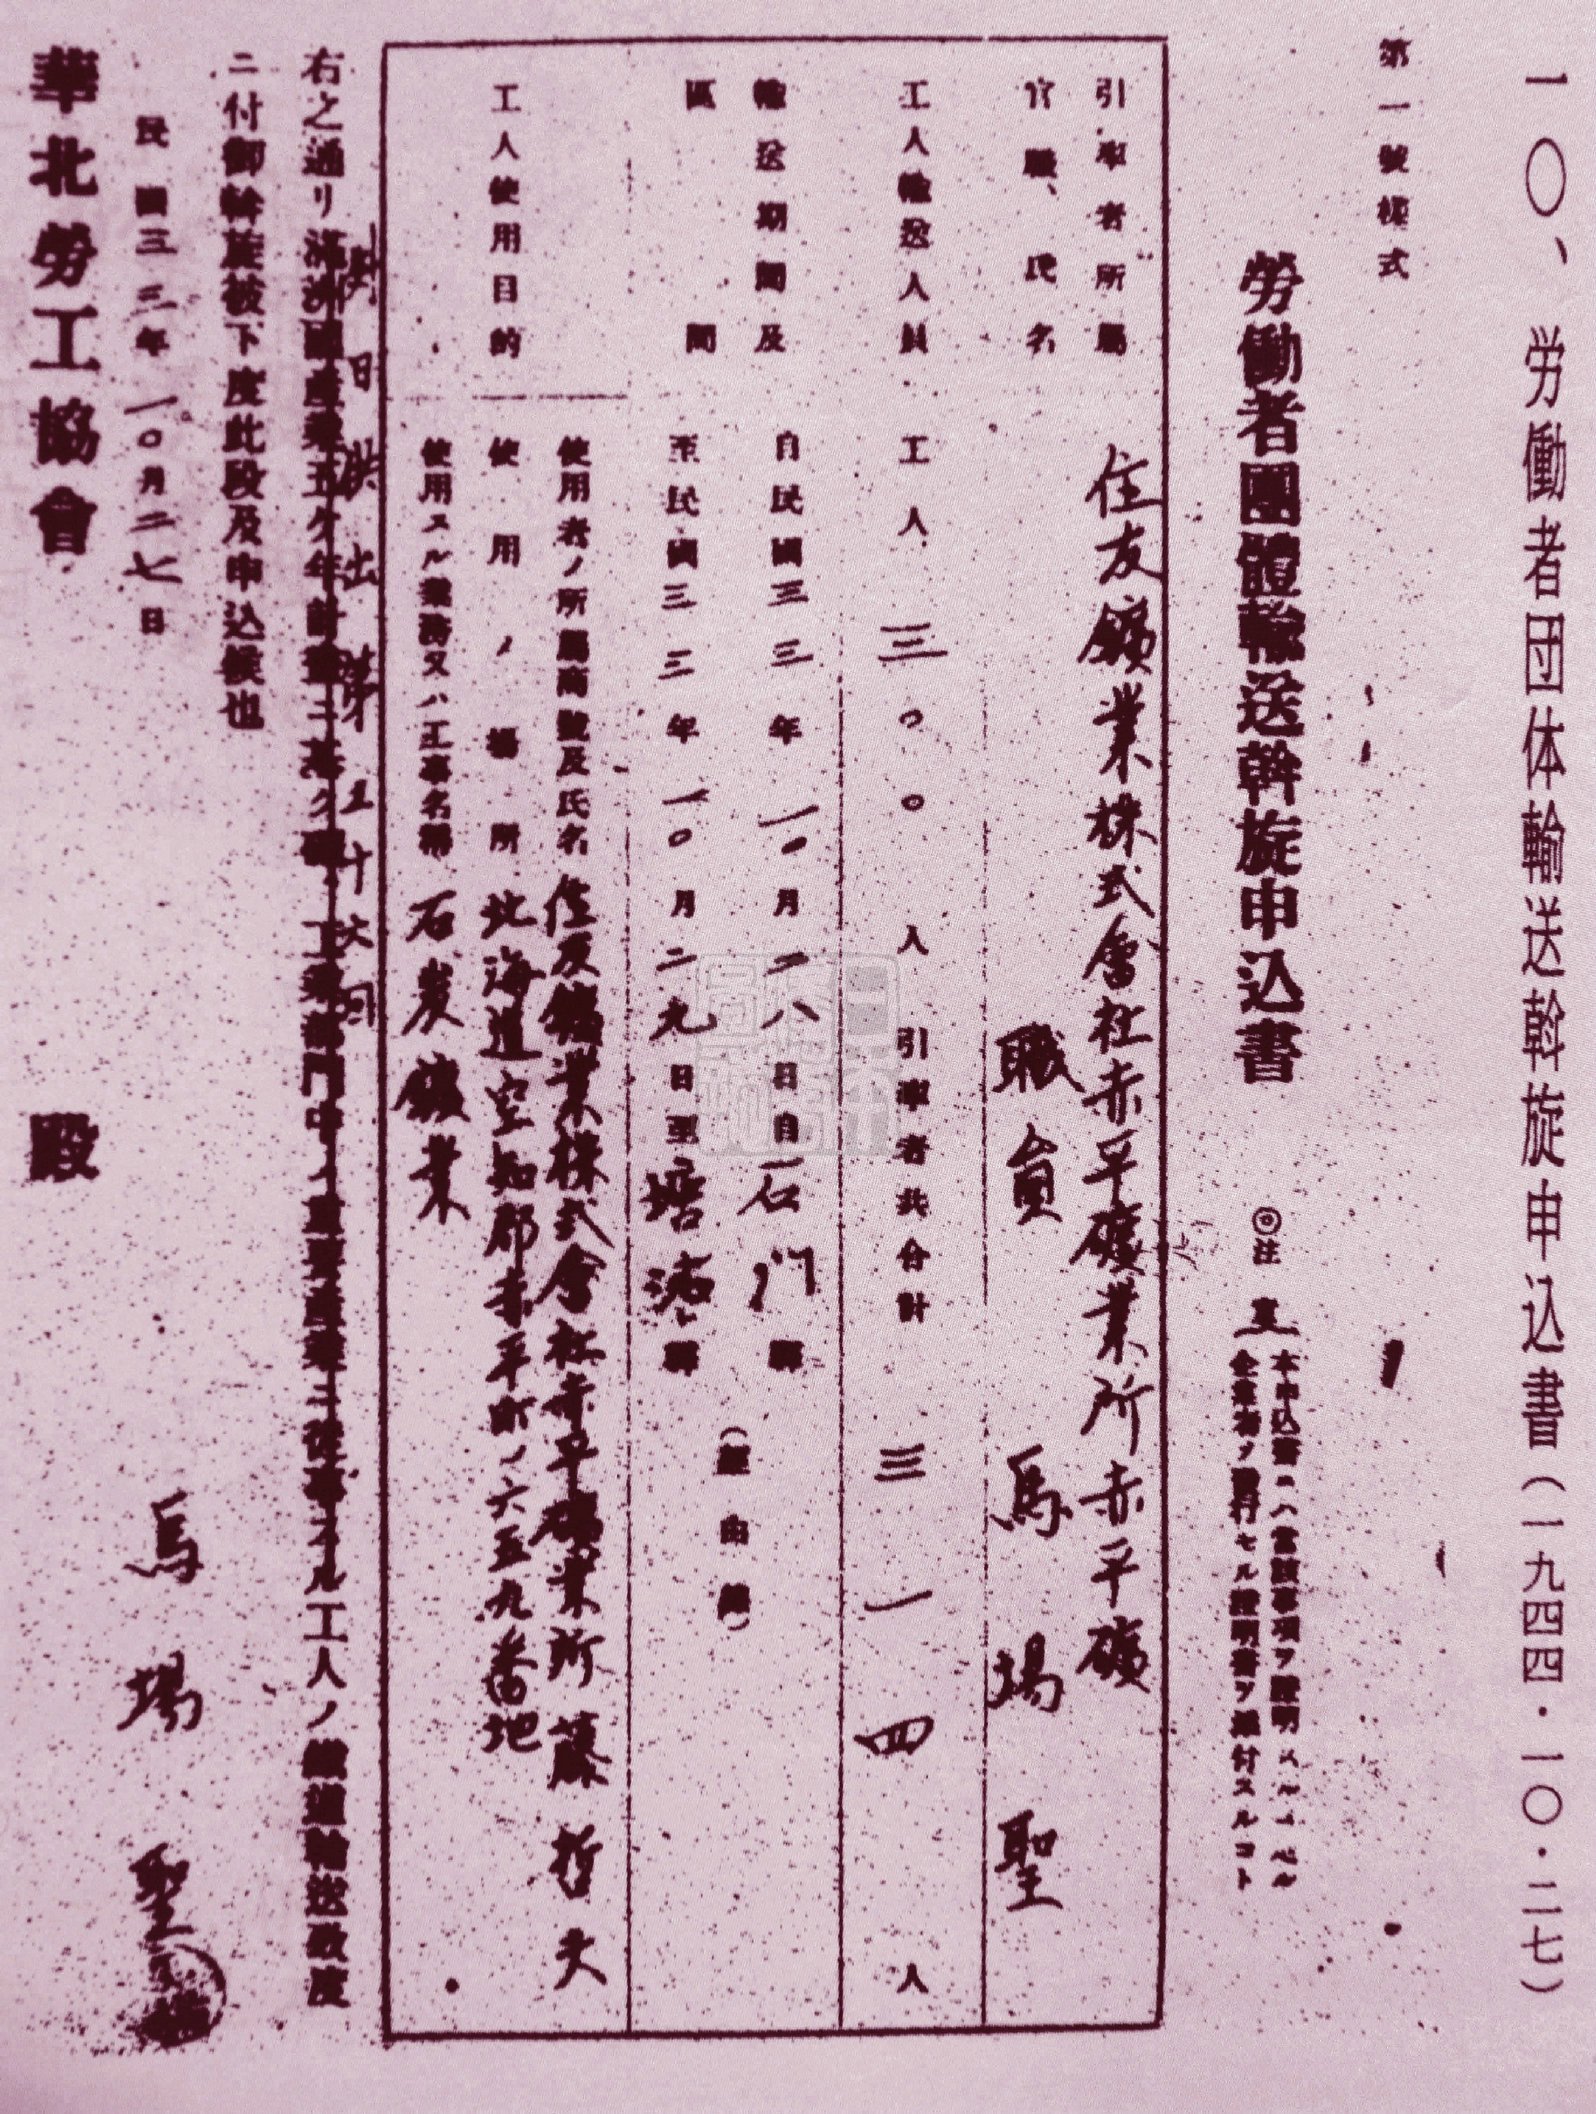 一〇、労働者団体輸送斡旋申込書（一九四四・一〇・二七）
第一號樣式
勞働者團體輸送斡旋申込書
◎注意
本申込書ニハ當該事項ヲ證明スルニ足ル
企業初ノ發行セル證明書ヲ添付スルコト
引率者所屬
官職、氏名
住友鑛業株式會社赤平礦業所赤平礦
職員 馬場聖
工人輸送人員
工人 三〇〇人 引率者共合計 三一四人
輸送期間及
區間
自民國三三年一〇月二八日自石門驛
至民國三三年一〇月二九日至塘沽驛
（經由驛）
工人使用目的
使用者ノ所屬商號及氏名 住友鑛業株式會社赤平礦業所 藤哲夫
使用ノ場所 北海道空知郡赤平町ノ六五九番地
使用スル業務又ハ工事名稱 石炭鑛業
右之通リ滿洲國產業五ケ年計畫ニ基ク礦、工業部門中ノ重要產業ニ從事スル工人ノ鐵道輸送致度
ニ付御斡旋被下度此段及申込候也
民國三三年一〇月二七日
馬場聖
華北勞工協會 殿